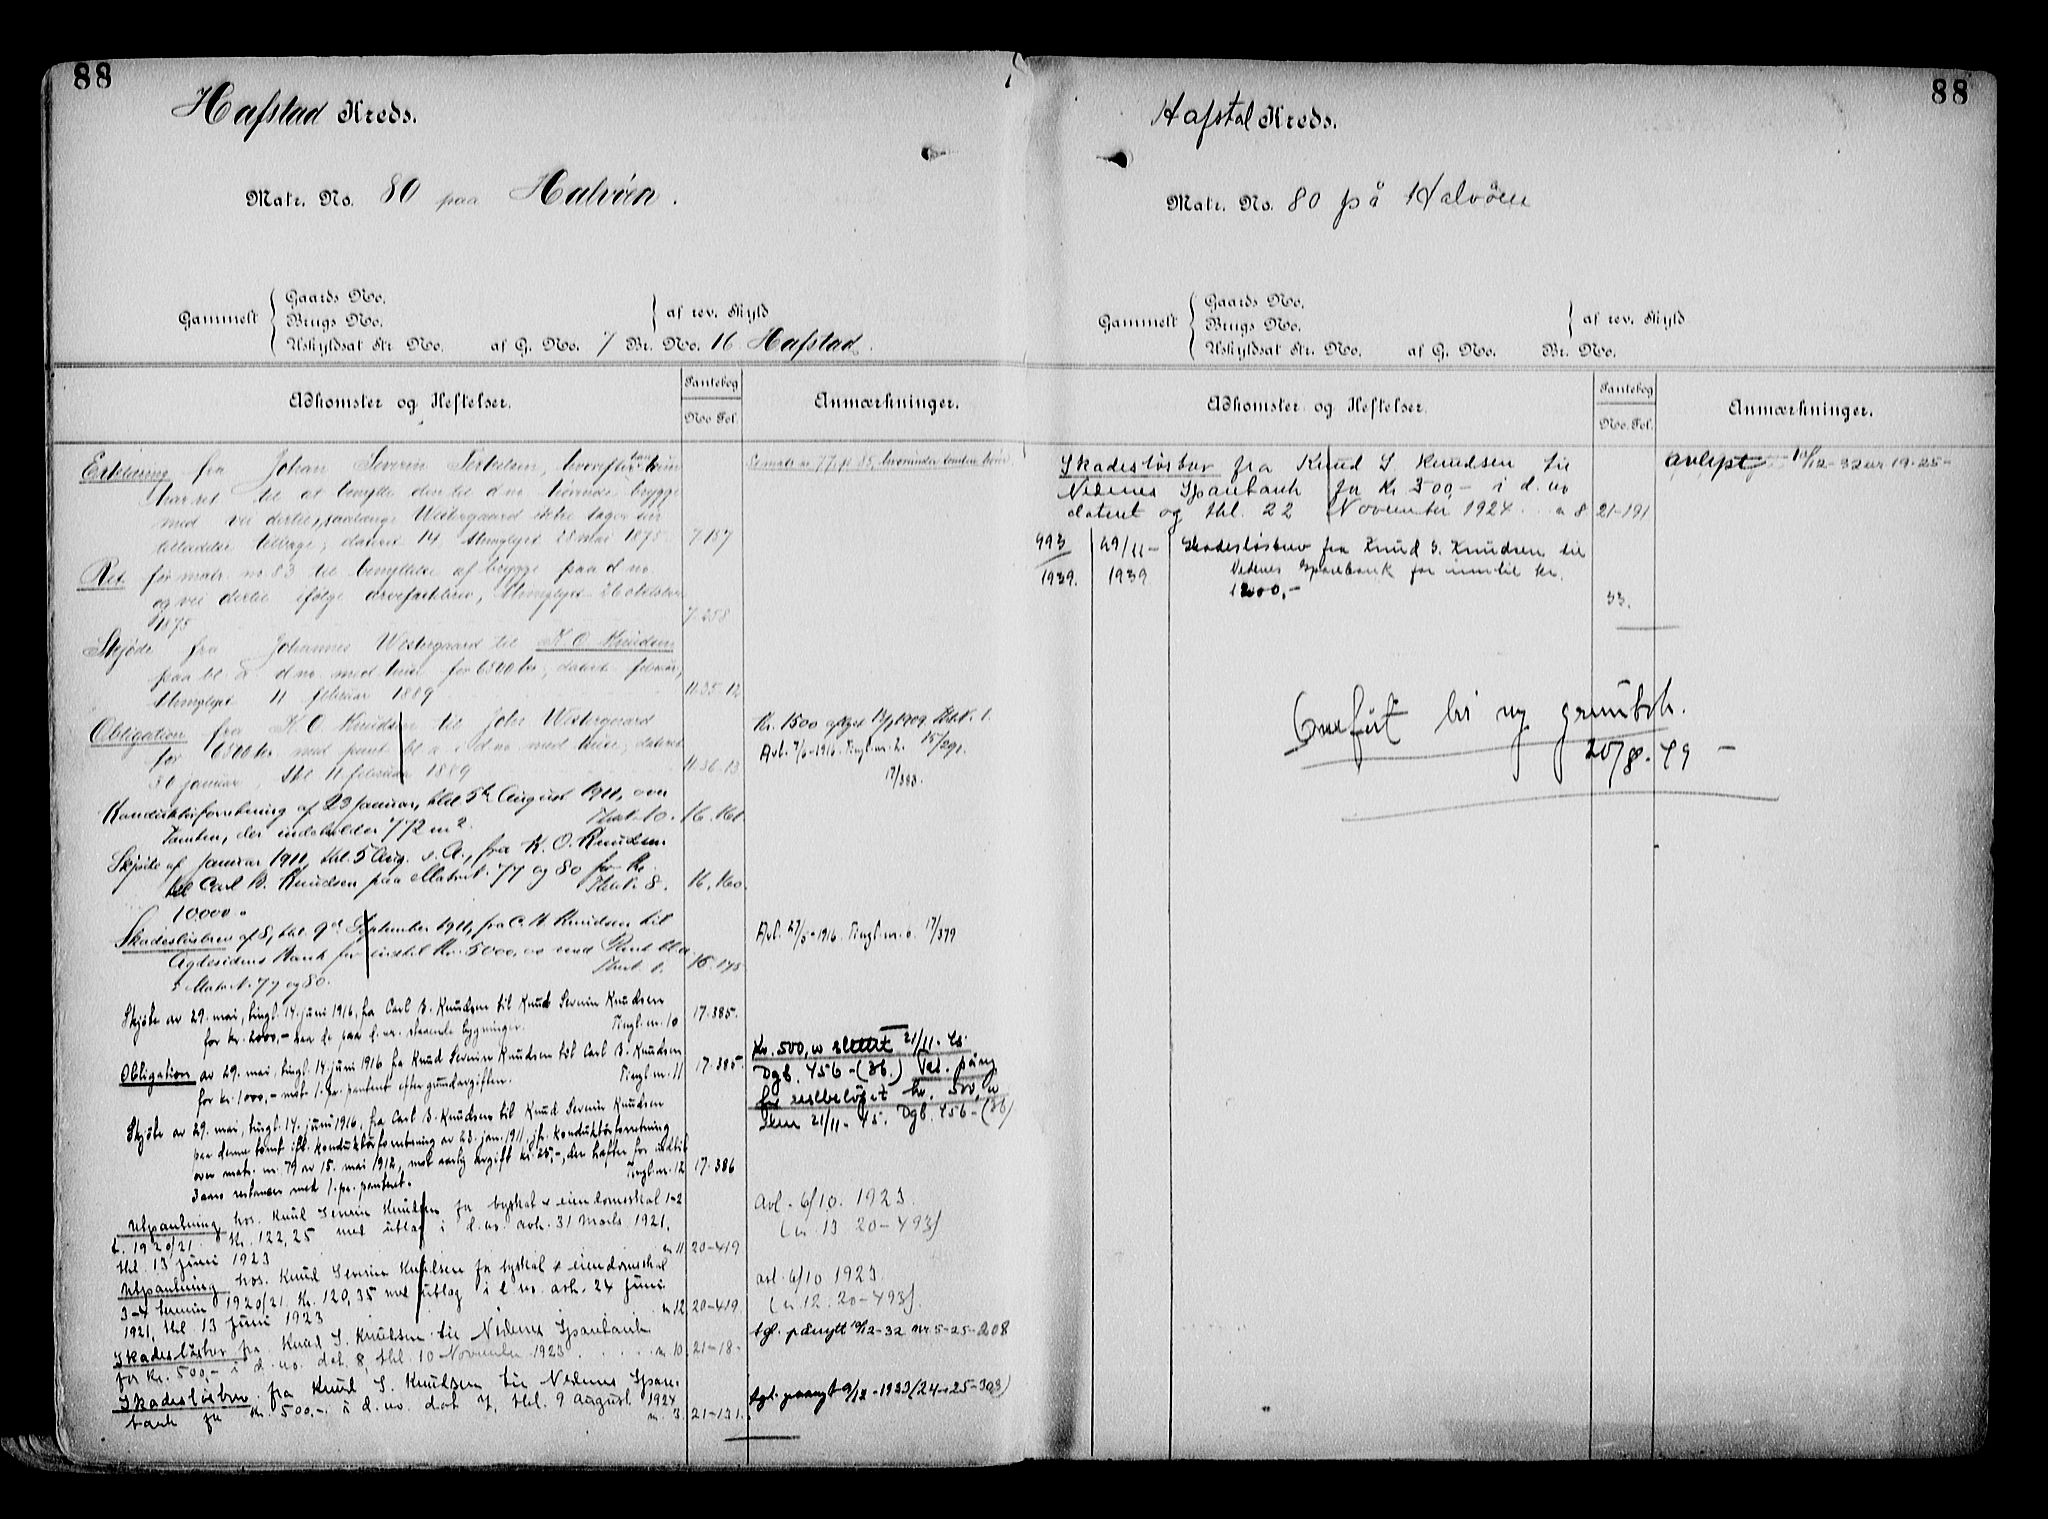 88
Hafstad Kreds.
Matr. No. 80 paa Halvöen.
Gammelt
Gaards No.
Brugs No.
Uskyldsat Str. No.
af rev. Skyld
af G. No. 7 Br. No. 16 Hafstad.
Adkomster og Heftelser.
Pantebog
No Fol.
Anmærkninger.
Erklæring fra Johan Severin Terkelsen, hvorefter han kun
har ret til at benytte den til d no hörende brygge
med vei dertil, saalænge Westergaard ikke tager sin
tilladelse tilbage; dateret 14, thinglyst 28 mai 1875 7-157
Ret for matr. no. 83 til benyttelse af brygge paa d no
og vei dertil ifölge arveskiftebrev, thinglyst 26 oktober
1875 7-258
Skjöde fra Johannes Westergaard til K. O. Knudsen
paa bl. a d no med huse for 6800 kr, dateret februar,
thinglyst 11 februar 1889 11.35-12
Obligation fra K O Knudsen til Joh Westergaard
for 6800 kr med pant bl a i d no med huse, dateret
30 januar, thl 11 februar 1889 11.36-13
Kr. 1500 aflyst 13/1 1909 Thk. 1. 15/291.
Avl. 7/6-1916. Tingl. nr. 2. 17/383.
Konduktörforretning af 23 Januar, thl 5te August 1911, over
Tomten, der indeholder 772 m². Thk. 10. 16. 161
Skjöte af Januar 1911, thl. 5 Aug. s. A., fra K. O. Knudsen
til Carl B. Knudsen paa Matr. 77 og 80 for Kr. Thk. 8. 16. 160.
10000.
Skadeslösbrev af 8, thl. 9de September 1911, fra C. B. Knudsen til
Agdesidens Bank for indtil Kr. 5000,00 med Pant bl. a.
i Matr. N. 77 og 80. Thk. 1. 16.175
Avl. 27/5-1916. Tingl. nr. 17/379
Skjöte av 29. mai, tingl. 14. juni 1916, fra Carl B. Knudsen til Knud Severin Knudsen
for kr. 2000,- paa de paa d. nr. staaende bygninger. Tingl. nr. 10 17-385.
Obligation av 29. mai, tingl. 14. juni 1916 fra Knud Severin Knudsen til Carl B. Knudsen
for kr. 1000,- mot 1. pr. panteret efter grundavgiften. Tingl. nr. 11 17-385.
Kr. 500,00 slettet 21/11-45.
Dgb. 456-(36.) Ved. påny
for restbelöpet kr. 500,00
21/11-45. Dgb. 456-(36)
Skjöte av 29. mai, tingl. 14. juni 1916, fra Carl B. Knudsen til Knud Severin Knudsen
paa denne tomt ifl. konduktörforretning av 23. jan. 1911, jfr. konduktörforretning
over matr. nr. 79 av 15. mai 1912, mot aarlig avgift kr. 25,-, der hefter for indtil
3 aars restancer med 1. pr. panteret. Tingl. nr. 12 17-386
Utpantning hos Knud Severin Knudsen for byskat & eiendomsskat 1-2
t. 1920/21 Kr. 122,25 med utlag i d. no. avh. 31 Mars 1921,
thl. 13 juni 1923 nr. 11 20-419
avl. 6/10. 1923.
(nr. 13 20-493)
Utpantning hos Knud Severin Knudsen for byskat & eiendomsskat
3-4 termin 1920/21. Kr. 120,35 med utlag i d no. avh. 24 Juni
1921, thl. 13 Juni 1923 nr. 12 20-419.
avl. 6/10 1923
(nr. 12. 20-493).
Skadeslösbrev fra Knud S. Knudsen til Nedenes Sparebank
for Kr. 500,- i d. no. dat. 8, thl. 10 November 1923 nr. 10. 21-18-
tgl. pånytt 10/12-32 nr 5-25-208
Skadeslösbrev fra Knud S. Knudsen til Nedenes Spare-
bank for Kr. 500,- i d. no. dat 7, thl. 9 August 1924 nr. 3. 21-131.
88
Hafstad Kreds.
Matr. No. 80 på Halvöen
Gammelt
Gaards No.
Brugs No.
Uskyldsat Str. No.
af rev. Skyld
af G. No. Br. No.
Adkomster og Heftelser.
Pantebog
No. Fol.
Anmærkninger.
Skadeslösbrev fra Knud S Knudsen til
Nedenes Sparebank for Kr 300,- i d. no
dateret og thl. 22 November 1924 nr 8 21-191
avlyst 10/12-32 nr 19-25-
993/1939. 29/11-1939 Skadeslösbrev fra Knud S. Knudsen til
Nedenes Sparebank for inntil kr.
1200,- 33.
Overfört til ny grunnbok.
20/8-49-